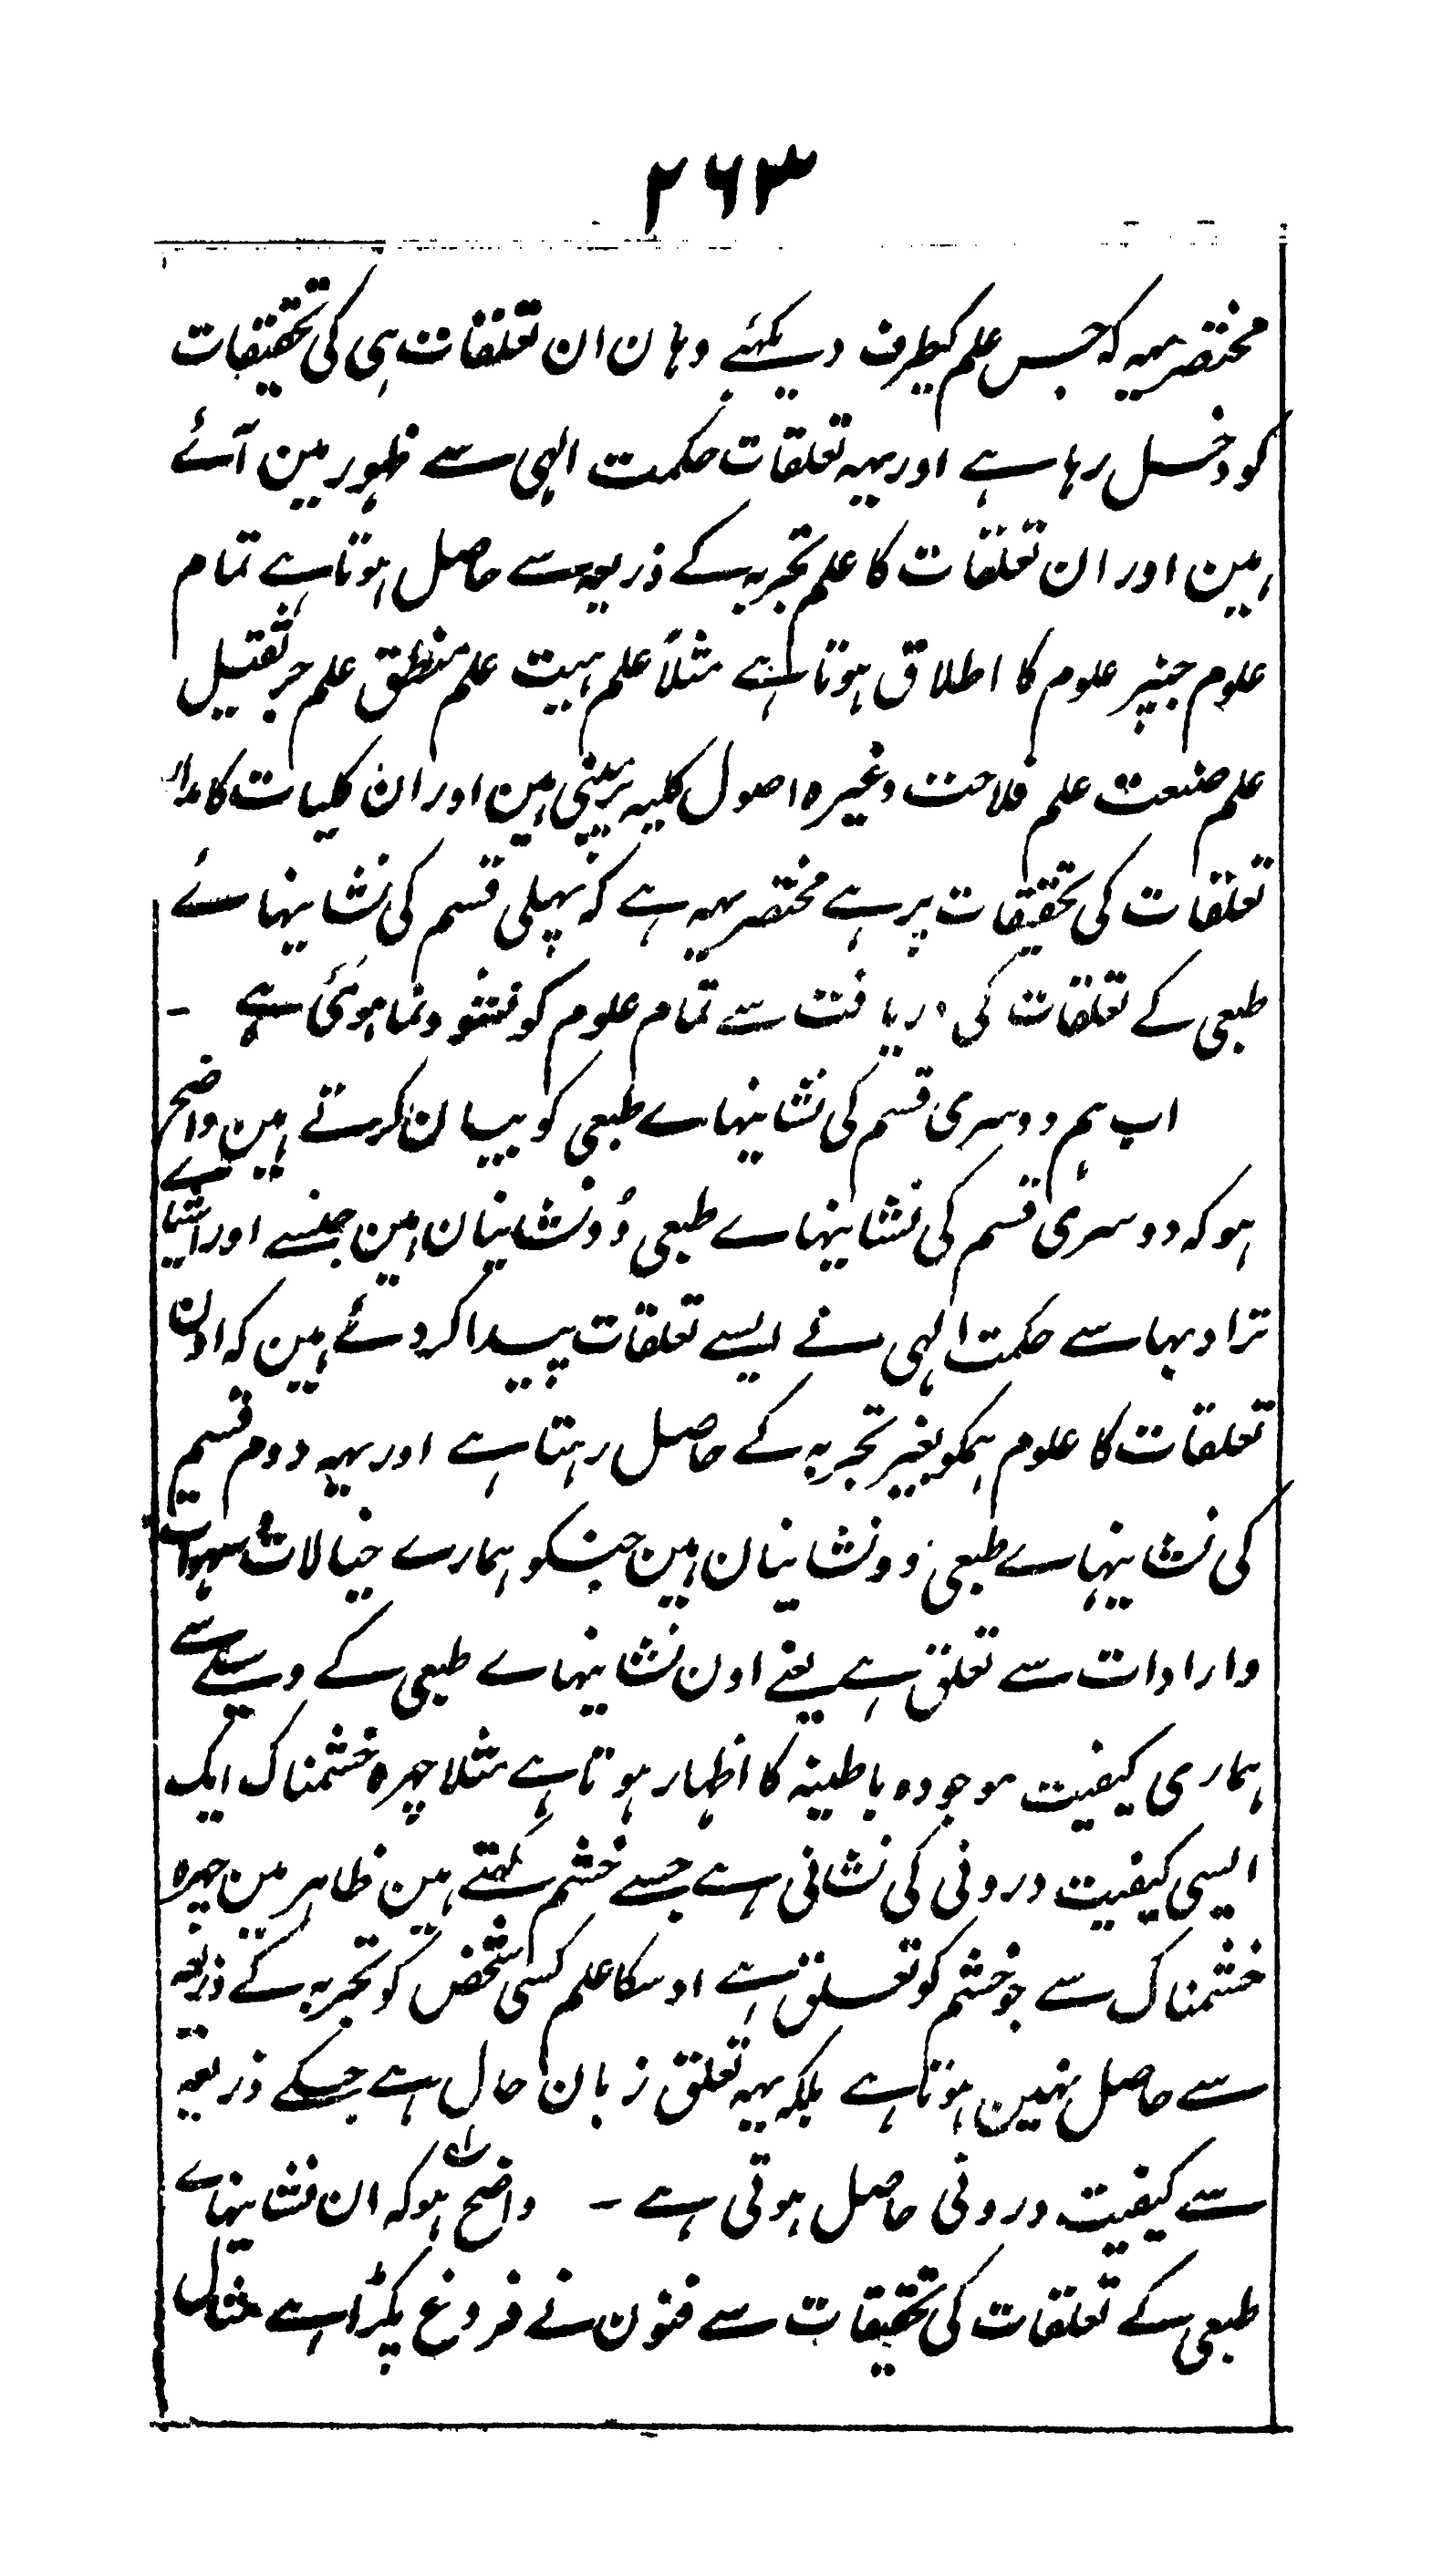 ۲۶۳
مختصر یہہ کہ جس علم کیطرف دیکہئے وہان ان تعلقات ہی کی تحقیقات
کو دخل رہا ہے اور یہہ تعلقات حکمت الہی سے ظہور مین آئے
ہین اور ان تعلقات کا علم تجربہ کے ذریعہ سے حاصل ہوتا ہے تمام
علوم جنپر علوم کا اطلاق ہوتا ہے مثلاً علم ہیت علم منطق علم جر ثقیل
علم صنعت علم فلاحت وغیرہ اصول کلیہ پر مبنی ہین اور ان کلیات کا مدار
تعلقات کی تحقیقات پر ہے مختصر یہہ ہے کہ پہلی قسم کی نشانیہائے
طبعی کے تعلقات کی دریافت سے تمام علوم کو نشو ونما ہوئی ہے -
اب ہم دوسری قسم کی نشانیہاے طبعی کو بیان کرتے ہین واضح
ہو کہ دوسری قسم کی نشانیہاے طبعی وُو نشانیان ہین جنسے اور اشیاے
تراد بہا سے حکمت الہی نے ایسے تعلقات پیدا کردئے ہین کہ اون
تعلقات کا علوم ہمکو بغیر تجربہ کے حاصل رہتا ہے اور یہہ دوم قسم
کی نشانیہاے طبعی وو نشانیان ہین جنکو ہمارے خیالات
وارادات سے تعلق ہے یعنے اون نشانیہاے طبعی کے وسیلے سے
ہماری کیفیت موجودہ باطینہ کا اظہار ہوتا ہے مثلا چہرہ خشمناک ایک
ایسی کیفیت درونی کی نشانی ہے جسے خشم کہتے ہین ظاہر مین چہرہ
خشمناک سے جو خشم کو تعلق ہے اوسکا علم کسی شخص کو تجربہ کے ذریعہ
سے حاصل نہین ہوتا ہے بلکہ یہہ تعلق زبان حال ہے جسکے ذریعہ
سے کیفیت درونی حاصل ہوتی ہے - واضح ہو کہ ان نشانیہاے
طبعی کے تعلقات کی تحقیقات سے فنون نے فروغ پکڑا ہے مثال